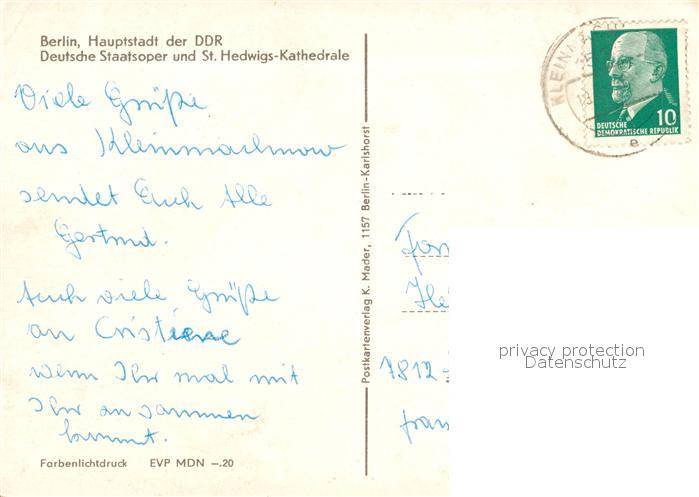 Berlin, Hauptstadt der DDR
Deutsche Staatsoper und St. Hedwigs-Kathedrale
Viele Grüße
aus Kleinmachnow
sendet Euch Alle
Gertrud.
Auch viele Grüße
an Cristiene
wenn Ihr mal mit
Ihr zusammen
kommt.
Farbenlichtdruck EVP MDN –.20
Postkartenverlag K. Mader, 1157 Berlin-Karlshorst
KLEINM
10
DEUTSCHE
DEMOKRATISCHE REPUBLIK
e
7812
privacy protection
Datenschutz